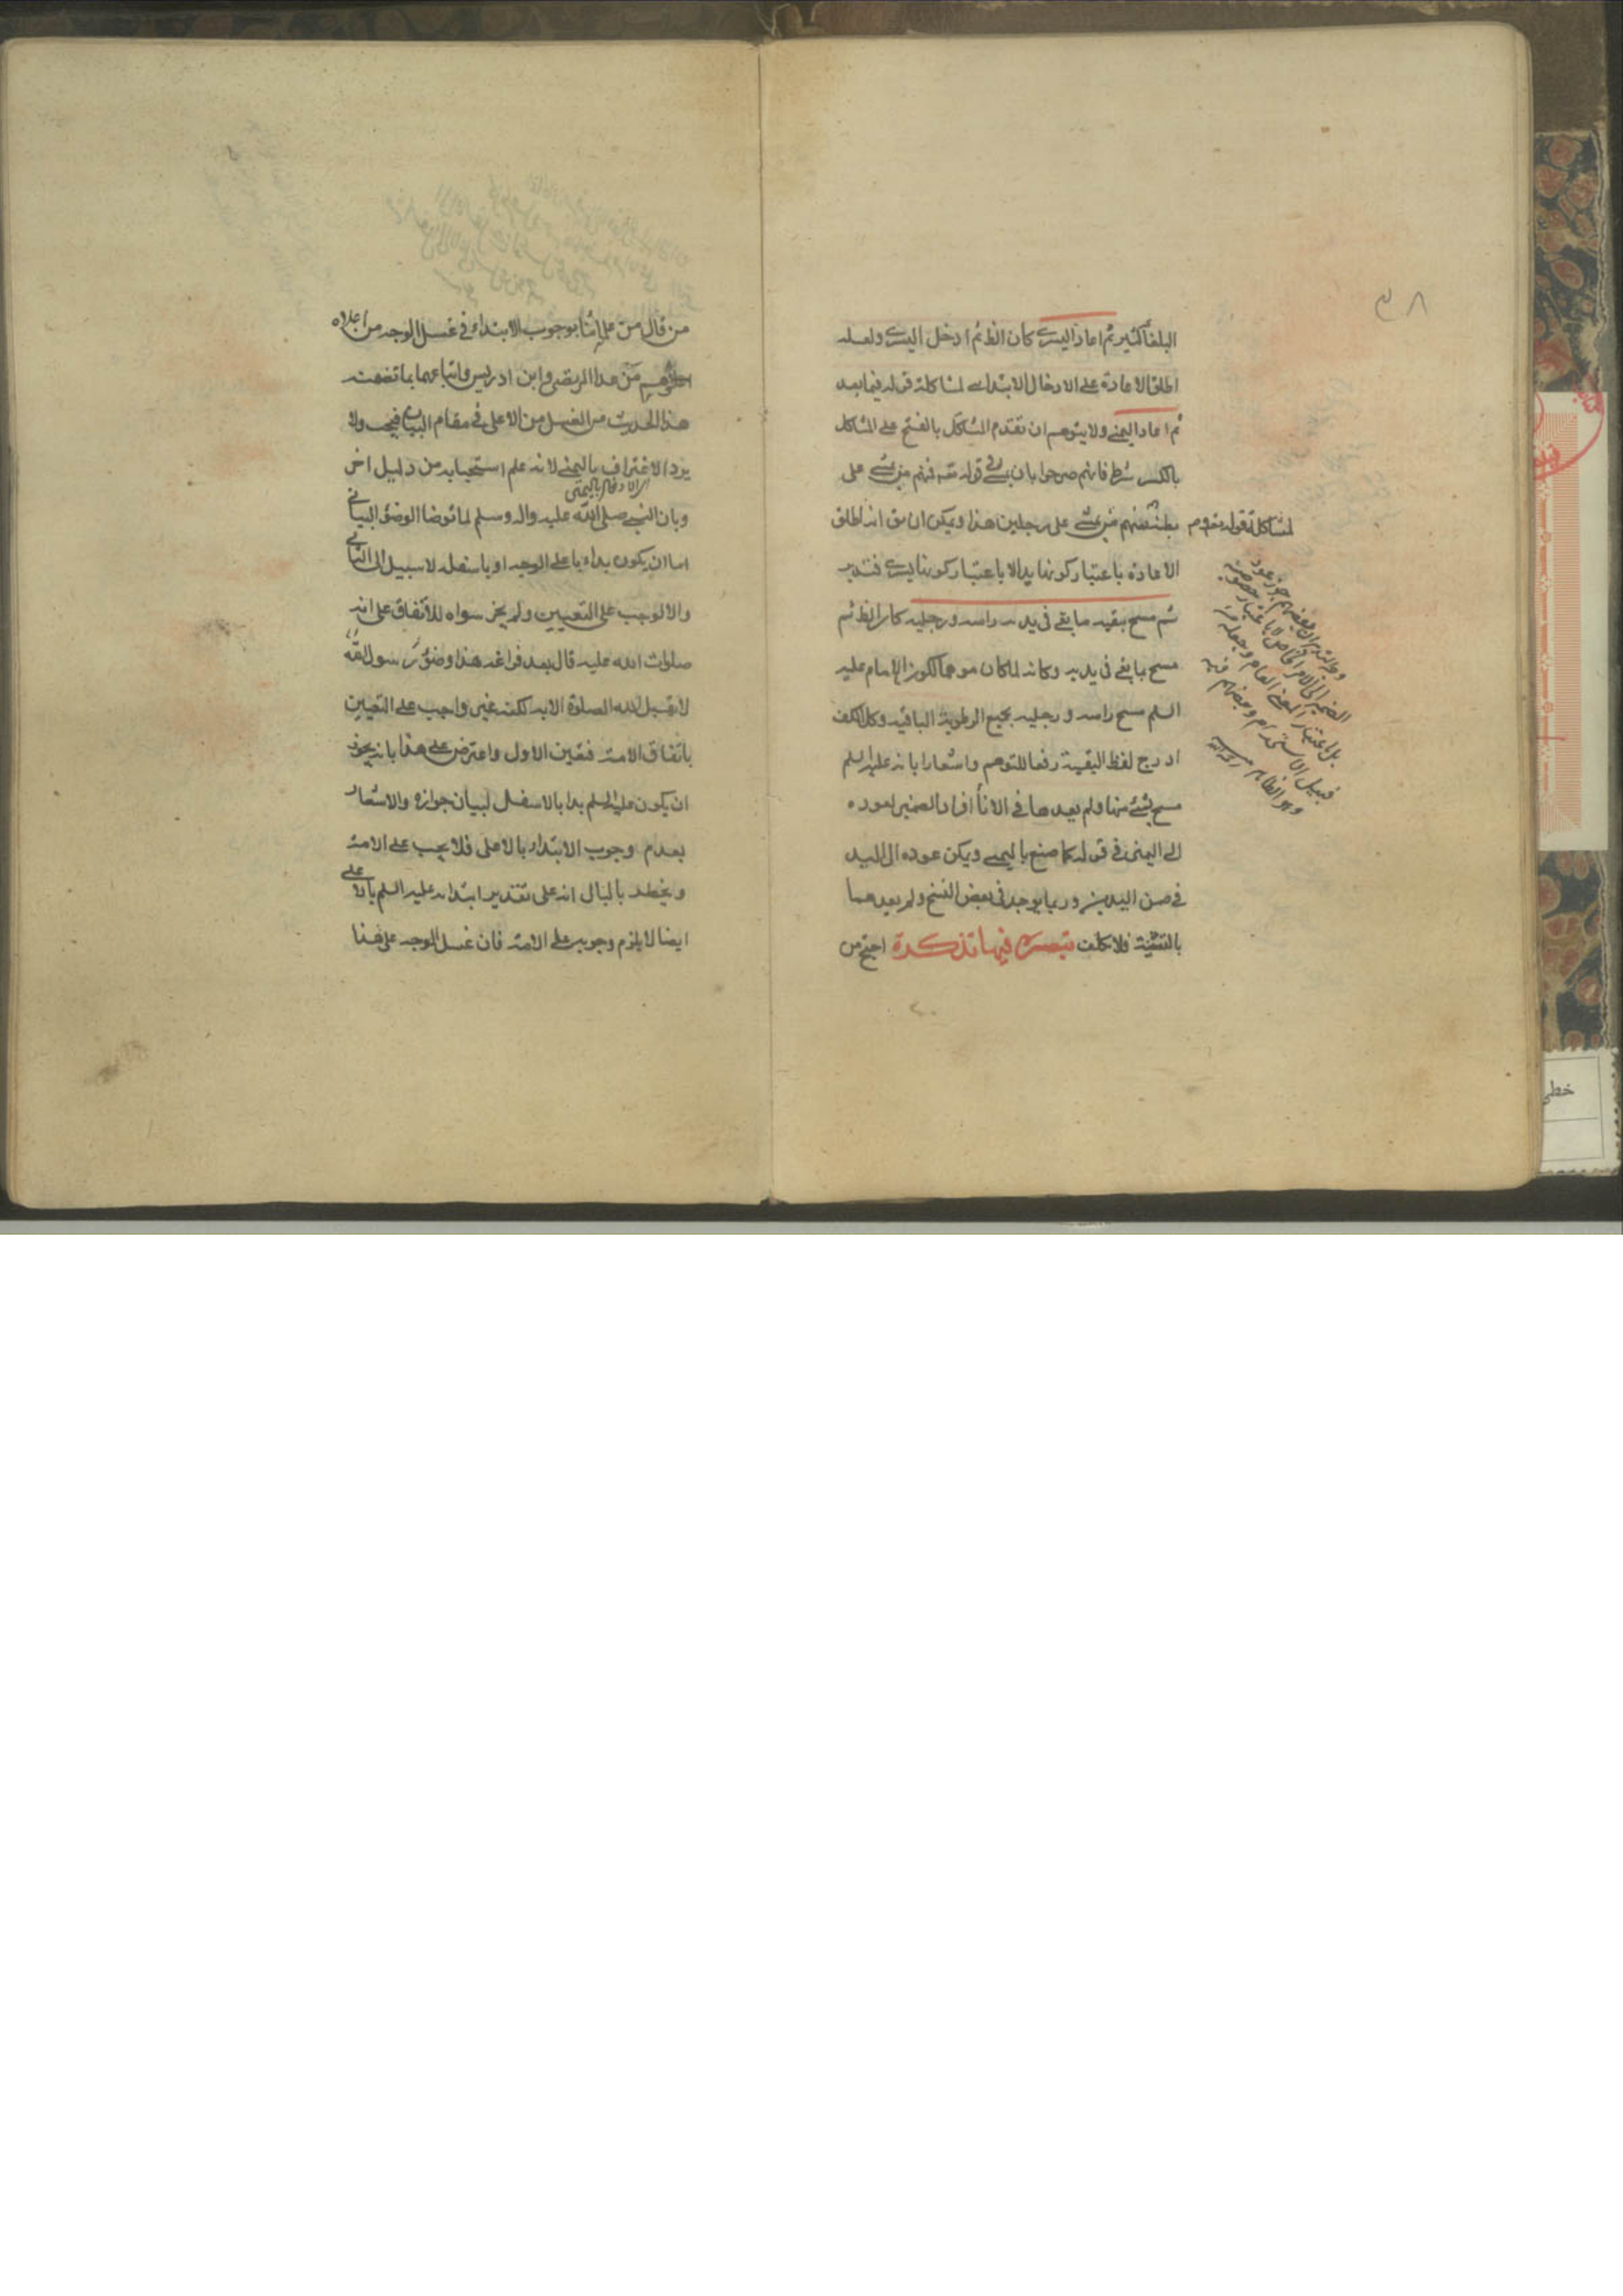 ٣٨
البلغا كثير ثم اعاد اليسرى كان الظ ثم ادخل اليسرى ولعله
اطلق الاعادة على الادخال الابتدائي لمشاكلة قوله فيما بعد
ثم اعاد اليمنى ولا يتوهم ان تقدم المشاكل بالفتح على المشاكل
بالكسر شرط فانهم صرحوا بان يمشي في قوله تعه فمنهم من يمشي على
بطنه لمشاكلة قوله ومنهم من يمشي على رجلين هذا ويمكن ان يق انه اطلق
الاعادة باعتبار كونها يدا لا باعتبار كونها يسرى فتدبر
ثم مسح ببقية ما بقي في يديه راسه ورجليه كان الظ ثم
مسح بما بقي في يديه وكانه لما كان موهما لكون الامام عليه
السلم مسح راسه ورجليه بجميع الرطوبة الباقية وكل الكف
ادرج لفظ البقية رفعا للتوهم واشعارا بانه عليه السلم
مسح بشئ منها ولم يعدها في الاناء افراد الضمير لعوده
الى اليمنى في قوله كما صنع باليمنى ويمكن عوده الى اليد
في ضمن اليدين وربما يوجد في بعض النسخ ولم يعدهما
بالتثنية فلا تكلف تبصرة فيها تذكرة احتج من
الضمير الى الامر الخاص لا باعتبار خصوصه
بل باعتبار المعنى العام وجعله من
قبيل الاستخدام وبعضهم فيه
وهو الظاهر منه رحمه الله
من قال من علمائنا بوجوب الابتداء في غسل الوجه من اعلاه
وهم من عدا المرتضى وابن ادريس واتباعهما بما تضمنه
هذا الحديث من الغسل من الاعلى في مقام البيان فيجب ولا
يرد الاغتراف باليمنى لانه علم استحبابه من دليل اخر
وبان النبي صلى الله عليه واله وسلم لما توضا الوضوء البياني
اما ان يكون بداء باعلى الوجه او باسفله لا سبيل الى الثاني
والا لوجب على التعيين ولم يجز سواه للاتفاق على انه
صلوات الله عليه قال بعد فراغه هذا وضوء
لا يقبل الله الصلوة الا به لكنه غير واجب على التعيين
باتفاق الامة فتعين الاول واعترض على هذا بانه يجوز
ان يكون عليه السلم بدا بالاسفل لبيان جوازه والاشعار
بعدم وجوب الابتداء بالاعلى فلا يجب على الامة
ويخطر بالبال انه على تقدير ابتدائه عليه السلم بالاعلى
ايضا لا يلزم وجوبه على الامة فان غسل الوجه على هذا
خطی